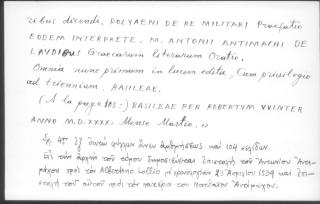 ribus dicendi. POLYAENI DE RE MILITARI Praefatio
EODEM INTERPRETE. M. ANTONII ANTIMACHI DE
LAUDIBUS Graecarum literarum Oratio.
Omnia nunc primum in lucem edita, Cum privilegio
ad triennium. BASILEAE.
(A la page 105:) BASILEAE PER ROBERTVM VVINTER
ANNO M.D.XXXX. Mense Martio. »
Σχ. 4ον ἐξ ὀκτὼ φύλλων ἄνευ ἀριθμήσεως καὶ 104 σελίδων.
Εἰς τὴν ἀρχὴν τοῦ τόμου δημοσιεύεται ἐπιστολὴ τοῦ Ἀντωνίου Ἀντι-
μάχου πρὸς τὸν Albertino Lollio μὲ χρονολογίαν 23 Ἀπριλίου 1539 καὶ ἐπι-
στολὴ τοῦ αὐτοῦ πρὸς τὸν πατέρα του Ματθαῖον Ἀντίμαχον.